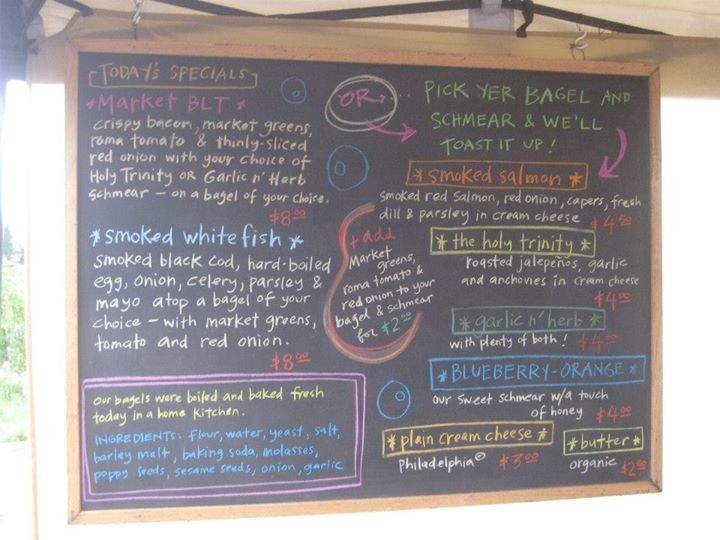 TODAY'S SPECIALS
*Market BLT*
crispy bacon, market greens,
roma tomato & thinly-sliced
red onion with your choice of
Holy Trinity OR Garlic n' Herb
schmear — on a bagel of your choice.
$8.00
*smoked white fish*
smoked black cod, hard-boiled
egg, onion, celery, parsley &
mayo atop a bagel of your
choice — with market greens,
tomato and red onion.
$8.00
our bagels were boiled and baked fresh
today in a home kitchen.
INGREDIENTS: flour, water, yeast, salt,
barley malt, baking soda, molasses,
poppy seeds, sesame seeds, onion, garlic
OR
+ add
Market
greens,
roma tomato &
red onion to your
bagel & schmear
for $2.00
PICK YER BAGEL AND
SCHMEAR & WE'LL
TOAST IT UP!
*smoked salmon*
smoked red salmon, red onion, capers, fresh
dill & parsley in cream cheese $4.50
*the holy trinity*
roasted jalepeños, garlic
and anchovies in cream cheese
$4.00
*garlic n' herb*
with plenty of both! $4.00
*BLUEBERRY-ORANGE*
our sweet schmear w/a touch
of honey $4.00
*plain cream cheese*
Philadelphia© $3.00
*butter*
organic $2.00